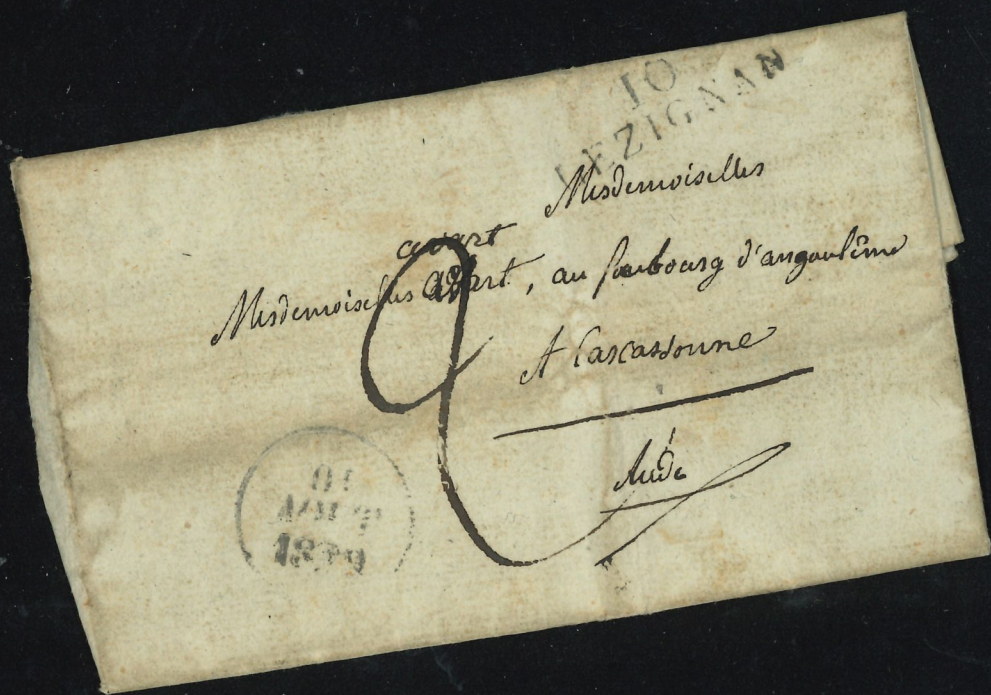 10
LEZIGNAN
Mesdemoiselles
avart
Mesdemoiselles, au faubourg d'angoulême
A Carcassonne
Aude
2
01
AOUT